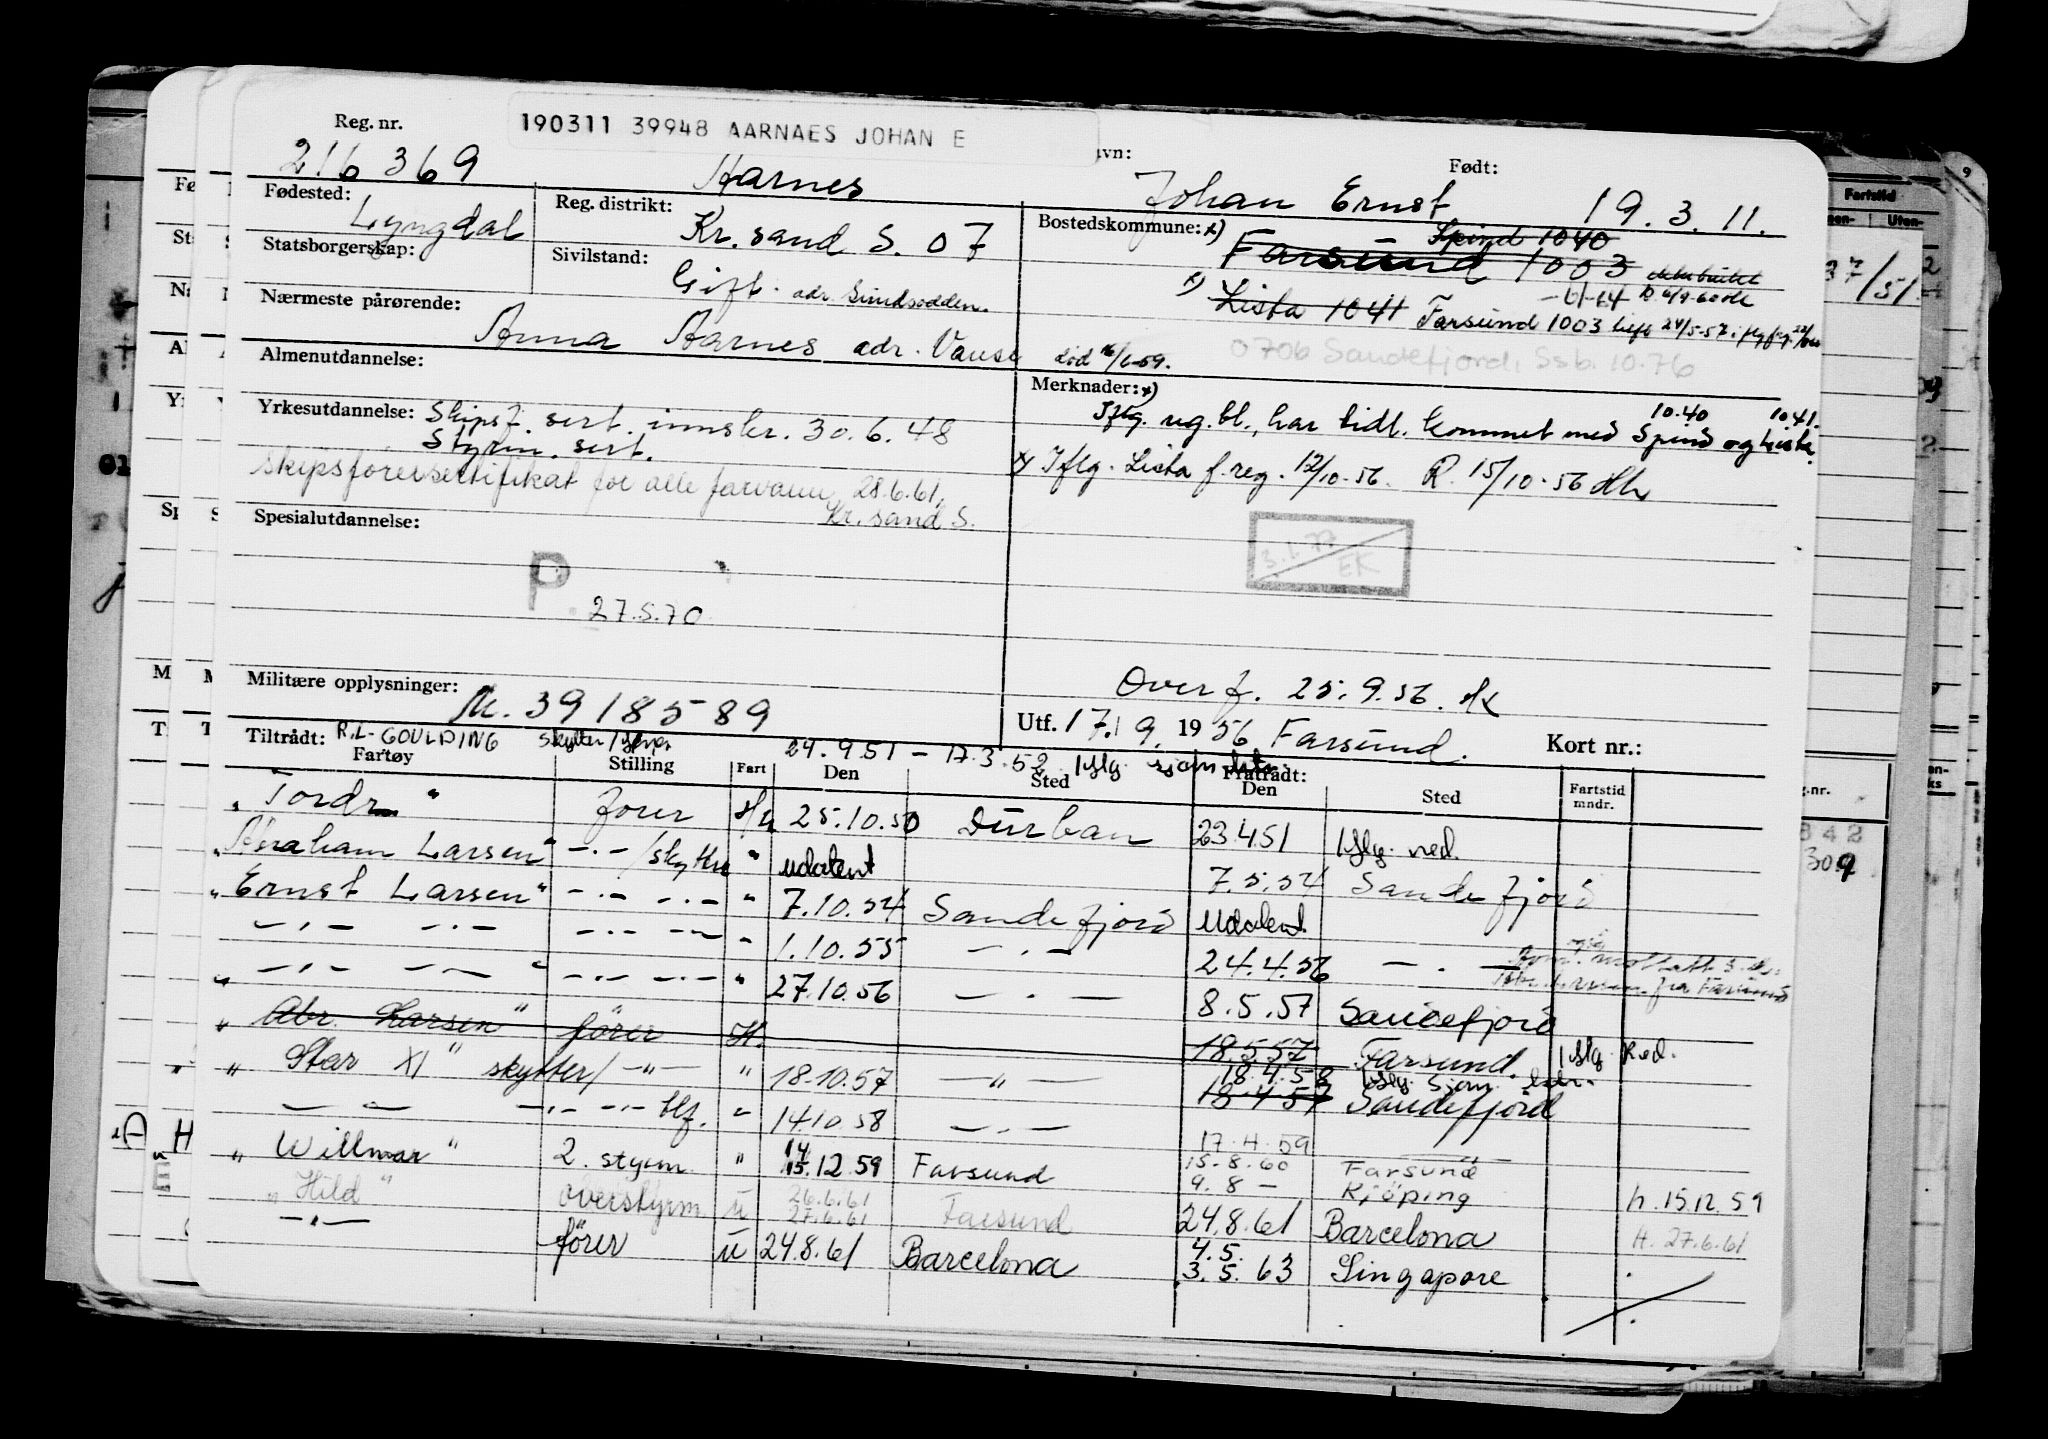 190311 39948 AARNAES JOHAN E
Reg. nr. 216369 Aarnes Johan Ernst Født: 19.3.11.
Fødested: Lyngdal Reg. distrikt: Kr. sand S. 07 Bostedskommune: x) Spind 1040
Farsund 1003
Statsborgerskap: Sivilstand: Gift. adr. Sundsodden.
x) Lista 1041 Farsund 1003
Nærmeste pårørende: Anna Aarnes adr. Vanse død 16/6-59.
0706 Sandefjord, Ssb. 10.76
Almenutdannelse: Merknader: x)
10.40 10.41.
Iflg. reg.bl., har tidl. kommet med Spind og Lista.
Yrkesutdannelse: Skipsf. sert. innskr. 30.6.48
Styrm. sert.
x) Iflg. Lista f.reg. 12/10-56. R. 15/10-56
skipsførersertifikat for alle farvann, 28.6.61,
Kr. sand S.
Spesialutdannelse:
3.1.77
EK
P. 27.5.70
Militære opplysninger: M. 3918589
Overf. 25.9.56.
Utf. 17.9. 1956 Farsund. Kort nr.:
Tiltrådt: R.L. GOULDING skytter/ 24.9.51 - 17.3.52 iflg. Fratrådt:
Fartøy Stilling Fart Den Sted Den Sted Fartstid mndr.
" Tordr " fører 25.10.50 Durban 23.4.51 iflg. red.
"Abraham Larsen" -.-/skytter " udatert 7.5.54 Sandefjord
"Ernst Larsen" -.- -.- " 7.10.54 Sandefjord udatert
-.- -.- -.- -.- " 1.10.55 -.- 24.4.56 -.-
" -.- -.- " -.- -.- " 27.10.56 -.- 8.5.57 Sandefjord
" Abr. Larsen" fører H. 18.5.57 Farsund. iflg. Red.
" Star XI " skytter/ -"- " 18.10.57 -"- 18.4.58 iflg. sjøm.
18.4.57 Sandefjord
-.- -.- -.- " 14.10.58 -.- 17.4.59
" Willmar " 2. styrm. " 14 15.12.59 Farsund 15.8.60 Farsund
9.8 - Kjöping h. 15.12.59
" Hild " overstyrm. u 26.6.61 27.6.61 Farsund 24.8.61 Barcelona H. 27.6.61
-"- fører u 24.8.61 Barcelona 4.5. 3.5.63 Singapore